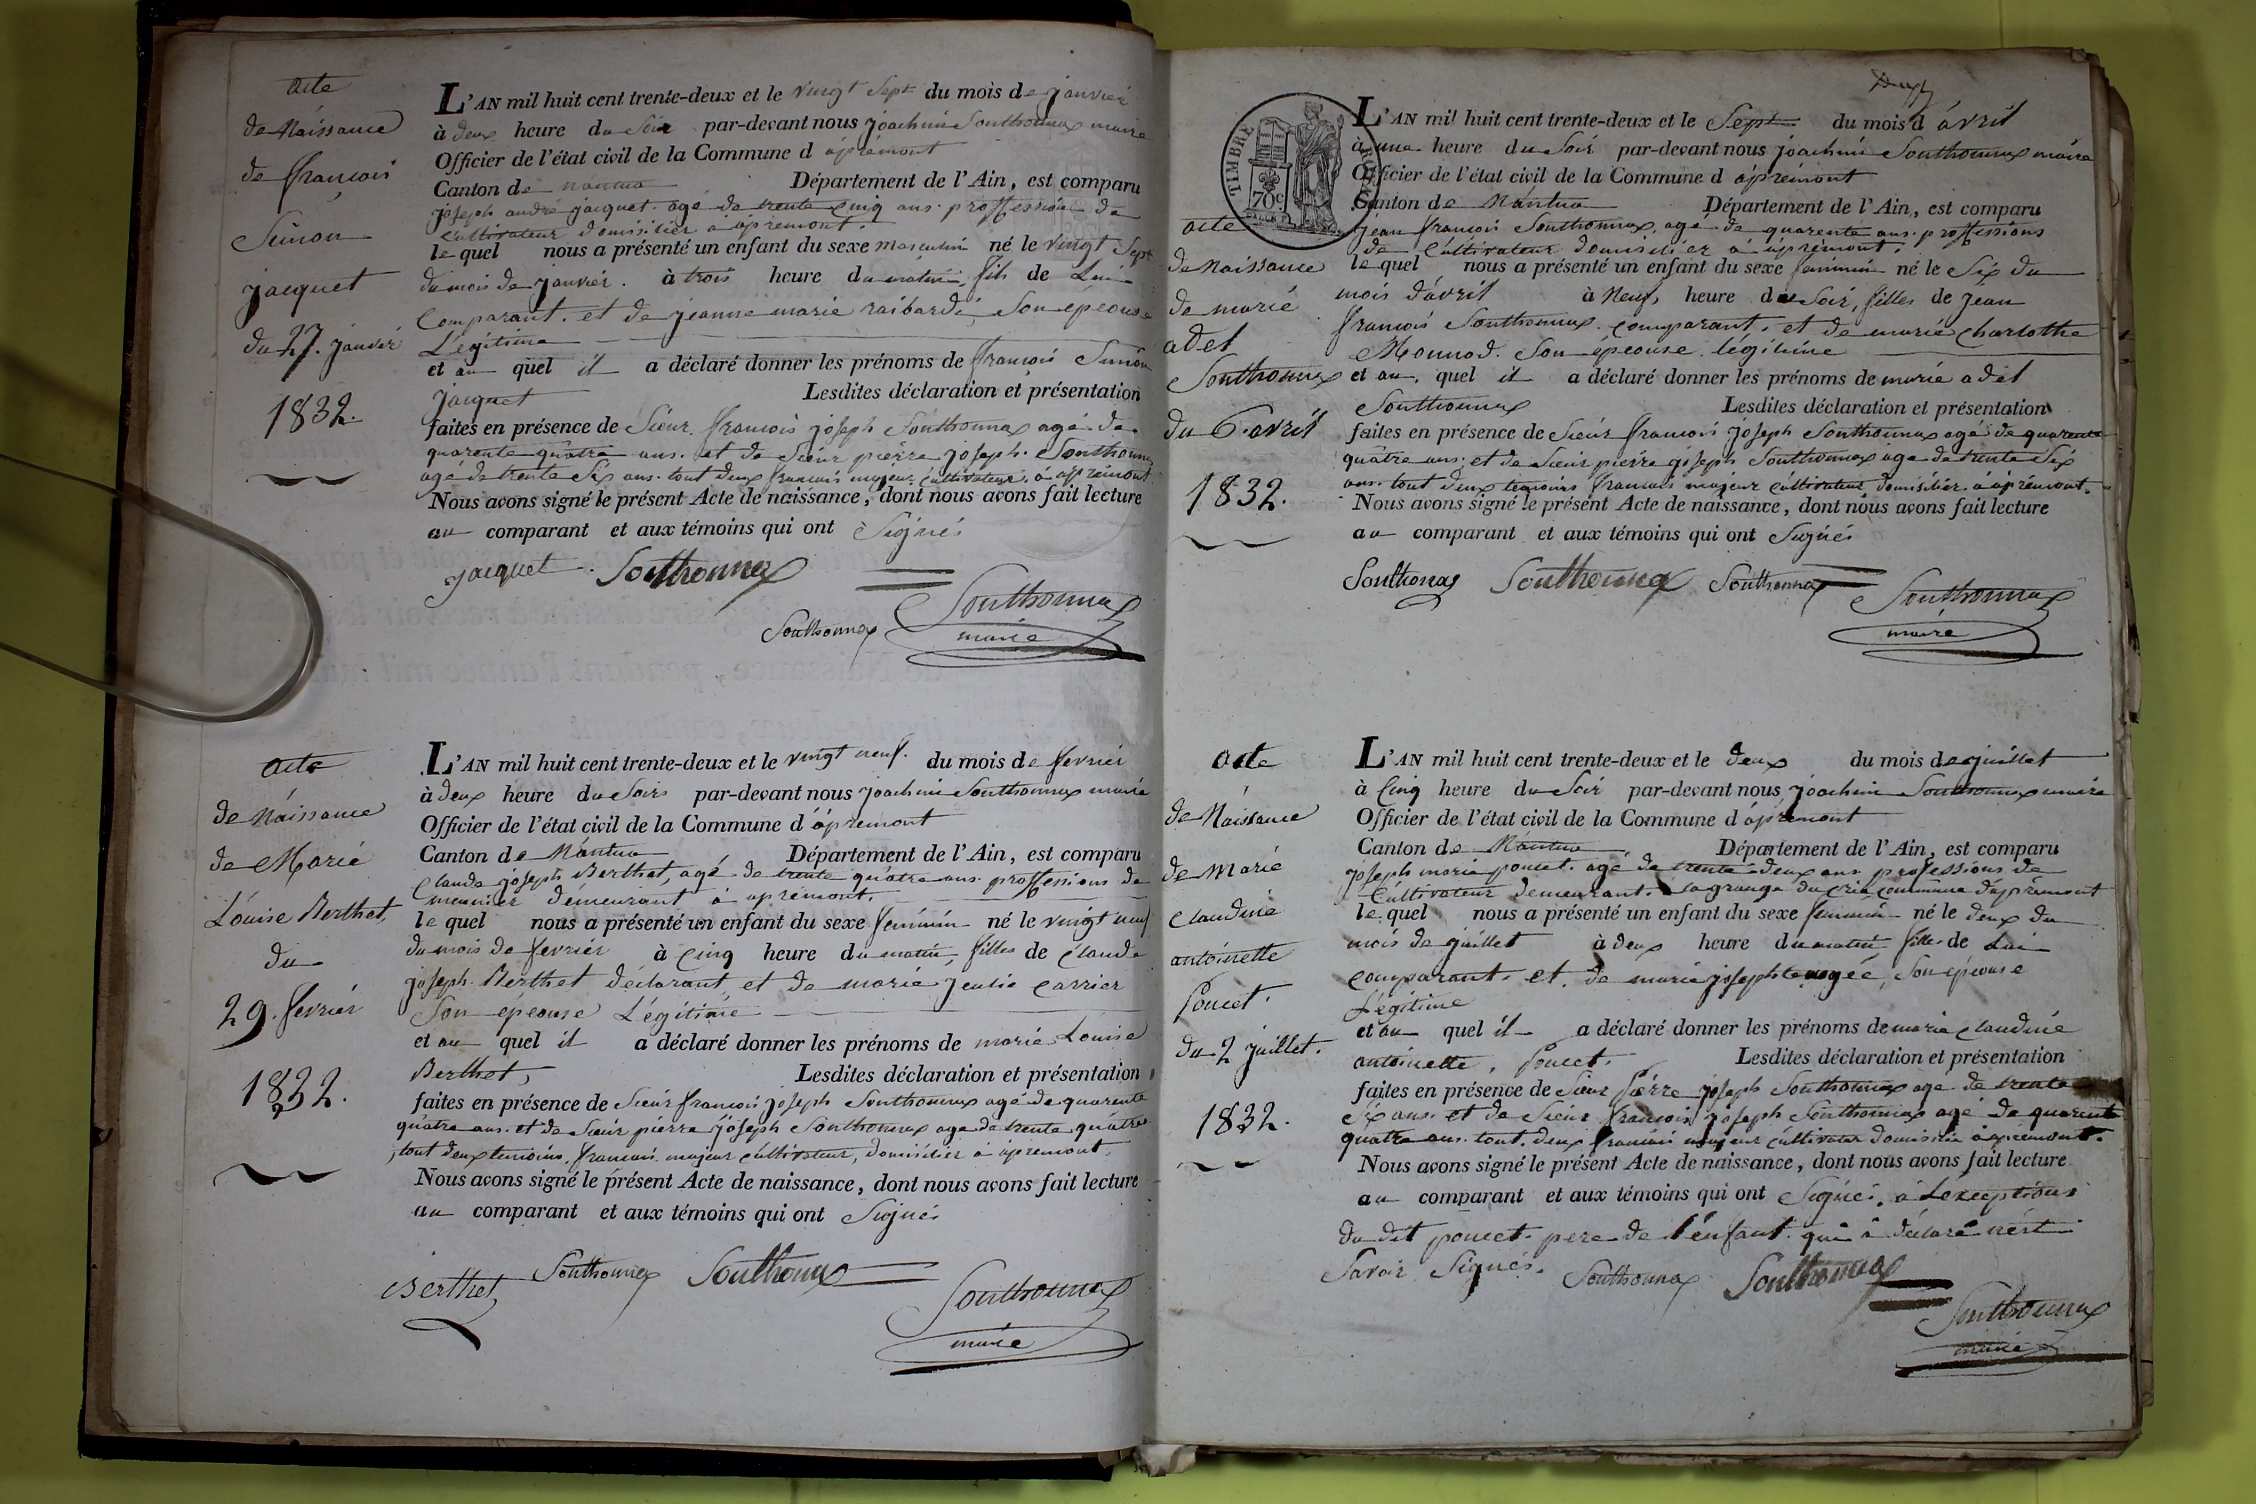 acte
de Náissance
de françois
Simon
jacquet
du 27. janviér
1832.
L'AN mil huit cent trente-deux et le vingt sept du mois de janviér
à deux heure du Soir par-devant nous joachim Southonnax maire
Officier de l'état civil de la Commune d apremont
Canton de nantua Département de l'Ain, est comparu
joseph andré jacquet. agé de trente cinq ans. proffession de
cultivateur domisiliér a apremont.
le quel nous a présenté un enfant du sexe masculin né le vingt Sept
du mois de janviér. à trois heure du matin, fils de Lui
comparant. et de jeanne marie raibardi, Son epeouse
Légitime
et au quel il a déclaré donner les prénoms de françois Simon
jacquet Lesdites déclaration et présentation
faites en présence de Sieur françois joseph Southonnax agé de
quarente quâtre ans. et de Sieur piérre joseph. Southonnax
agé de trente Six ans. tout deux francais majeur cultivateur. à apremont
Nous avons signé le présent Acte de naissance, dont nous avons fait lecture
au comparant et aux témoins qui ont Signés
jacquet. Southonnax
Southonnax Southonnax
maire
acte
de Náissance
de Marie
Louise Berthet,
du
29. fevriér
1832.
L'AN mil huit cent trente-deux et le vingt neuf. du mois de fevriér
à deux heure du Soir par-devant nous joachim Southonnax maire
Officier de l'état civil de la Commune d ápremont
Canton de Nántua Département de l'Ain, est comparu
Claude joseph Berthet, agé de trente quâtre ans. proffessions de
meunier démeurant à apremont.
le quel nous a présenté un enfant du sexe féminin né le vingt neuf
du mois de fevriér à Cinq heure du matin, filles de Claude
joseph. Berthet déclarant et de marie julie carrier
Son épeouse Légitime
et au quel il a déclaré donner les prénoms de marie Louise
Berthet, Lesdites déclaration et présentation
faites en présence de Sieur françois joseph Southonnax agé de quarente
quâtre ans. et de Sieur piérre joseph Southonnax age de trente quâtre
tout deux temoins, francais majeur cultivateur, domisiliér à apremont.
Nous avons signé le présent Acte de naissance, dont nous avons fait lecture
au comparant et aux témoins qui ont Signés
Berthet Southonnax Southonnax
Southonnax
maire
TIMBRE ROYAL
70c
acte
de Naissance
de marie
adel
Southonnax
du 6. avril
1832.
L'AN mil huit cent trente-deux et le Sept du mois d ávril
à une heure du Soir par-devant nous joachim Southonnax máire
Officier de l'état civil de la Commune d ápremont
Canton de Nántua Département de l'Ain, est comparu
jean francois Southonnax. agé de quarente ans. proffessions
de Cultivateur domisiliér a apremont.
le quel nous a présenté un enfant du sexe feminin né le Six du
mois d'ávril à Neuf, heure du Soir, filles de jean
francois Southonnax. comparant, et de marie charlothe
Monnod. Son épeouse. légitime
et au. quel il a déclaré donner les prénoms de marie adel
Southonnax Lesdites déclaration et présentation
faites en présence de Sieur francois joseph Southonnax agé de quarente
quâtre ans; et de Sieur piérre joseph Southonnax age de trente Six
ans. tout deux temoins francais majeur cultivateur domisiliér a apremont.
Nous avons signé le présent Acte de naissance, dont nous avons fait lecture
au comparant et aux témoins qui ont Signés
Southonax Southonnax Southonnax
Southonnax
maire
acte
de Náissance
de Marie
claudine
antoinette
Poncet.
du 2 juillet.
1832.
L'AN mil huit cent trente-deux et le deux du mois de juillet
à Cinq heure du Soir par-devant nous joachim Southonnax maire
Officier de l'état civil de la Commune d ápremont
Canton de Nántua Département de l'Ain, est comparu
joseph marie poncet. agé de trente deux ans professions de
Cultivateur demeurant. Lagrange du crie commune d'apremont
le quel nous a présenté un enfant du sexe feminin né le deux du
mois de juillet à deux heure du matin filles de Lui
comparant. et. de marie josephte Son épeouse
Légitime
et au quel il a déclaré donner les prénoms de marie claudine
antoinette, Poncet. Lesdites déclaration et présentation
faites en présence de Sieur Piérre joseph Southonnax age de trente
Six ans. et de Sieur françois joseph Southonnax agé de quarente
quâtre ans. tout. deux francais majeur cultivateur domisiliér à apremont.
Nous avons signé le présent Acte de naissance, dont nous avons fait lecture
au comparant et aux témoins qui ont Signés. à Léxceptions
du dit poncet. pere de l'enfant. qui à déclaré
Savoir Signés. Southonnax Southonnax
Southonnax
maire